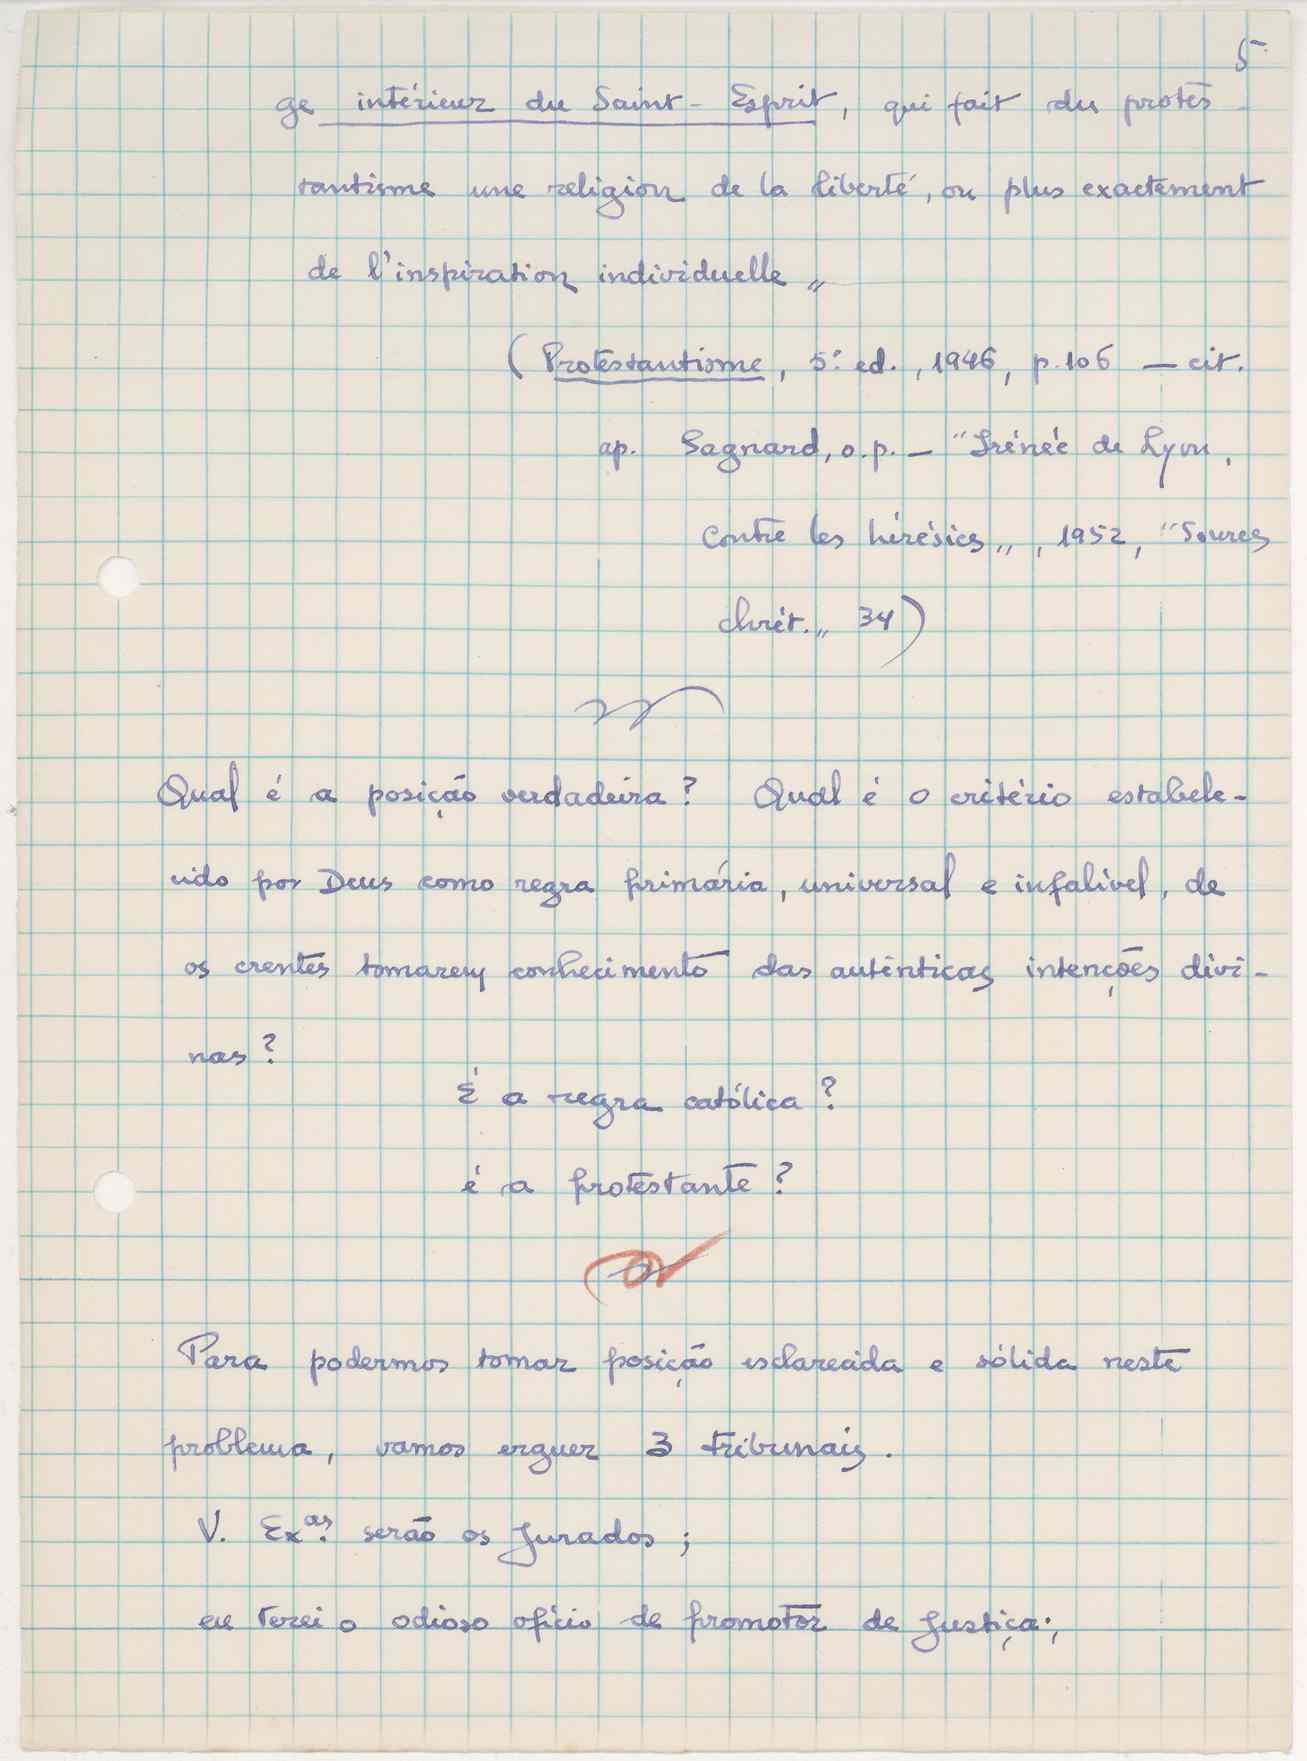 5
ge intérieur du Saint-Esprit, qui fait du protes-
tantisme une religion de la liberté, ou plus exactement
de l'inspiration individuelle „
(Protestantisme, 5ª ed., 1946, p. 106 — cit.
ap. Sagnard, o.p. — "Irénée de Lyon,
Contre les hérésies„, 1952, "Sources
chrét.„ 34)
Qual é a posição verdadeira? Qual é o critério estabele-
cido por Deus como regra primária, universal e infalível, de
os crentes tomarem conhecimento das autênticas intenções divi-
nas?
É a regra católica?
é a protestante?
Para podermos tomar posição esclarecida e sólida neste
problema, vamos erguer 3 tribunais.
V. Exas. serão os Jurados;
eu terei o odioso ofício de promotor de Justiça;